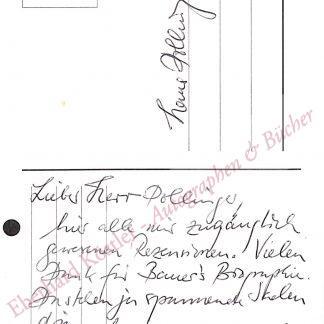 Hans Pollinger
Lieber Herr Pollinger,
hier alle mir zugänglich
gewesenen Rezensionen. Vielen
Dank für Bauer's Biographie.
Da stehen ja spannende
drin
Eberhard Köstler - Autographen & Bücher